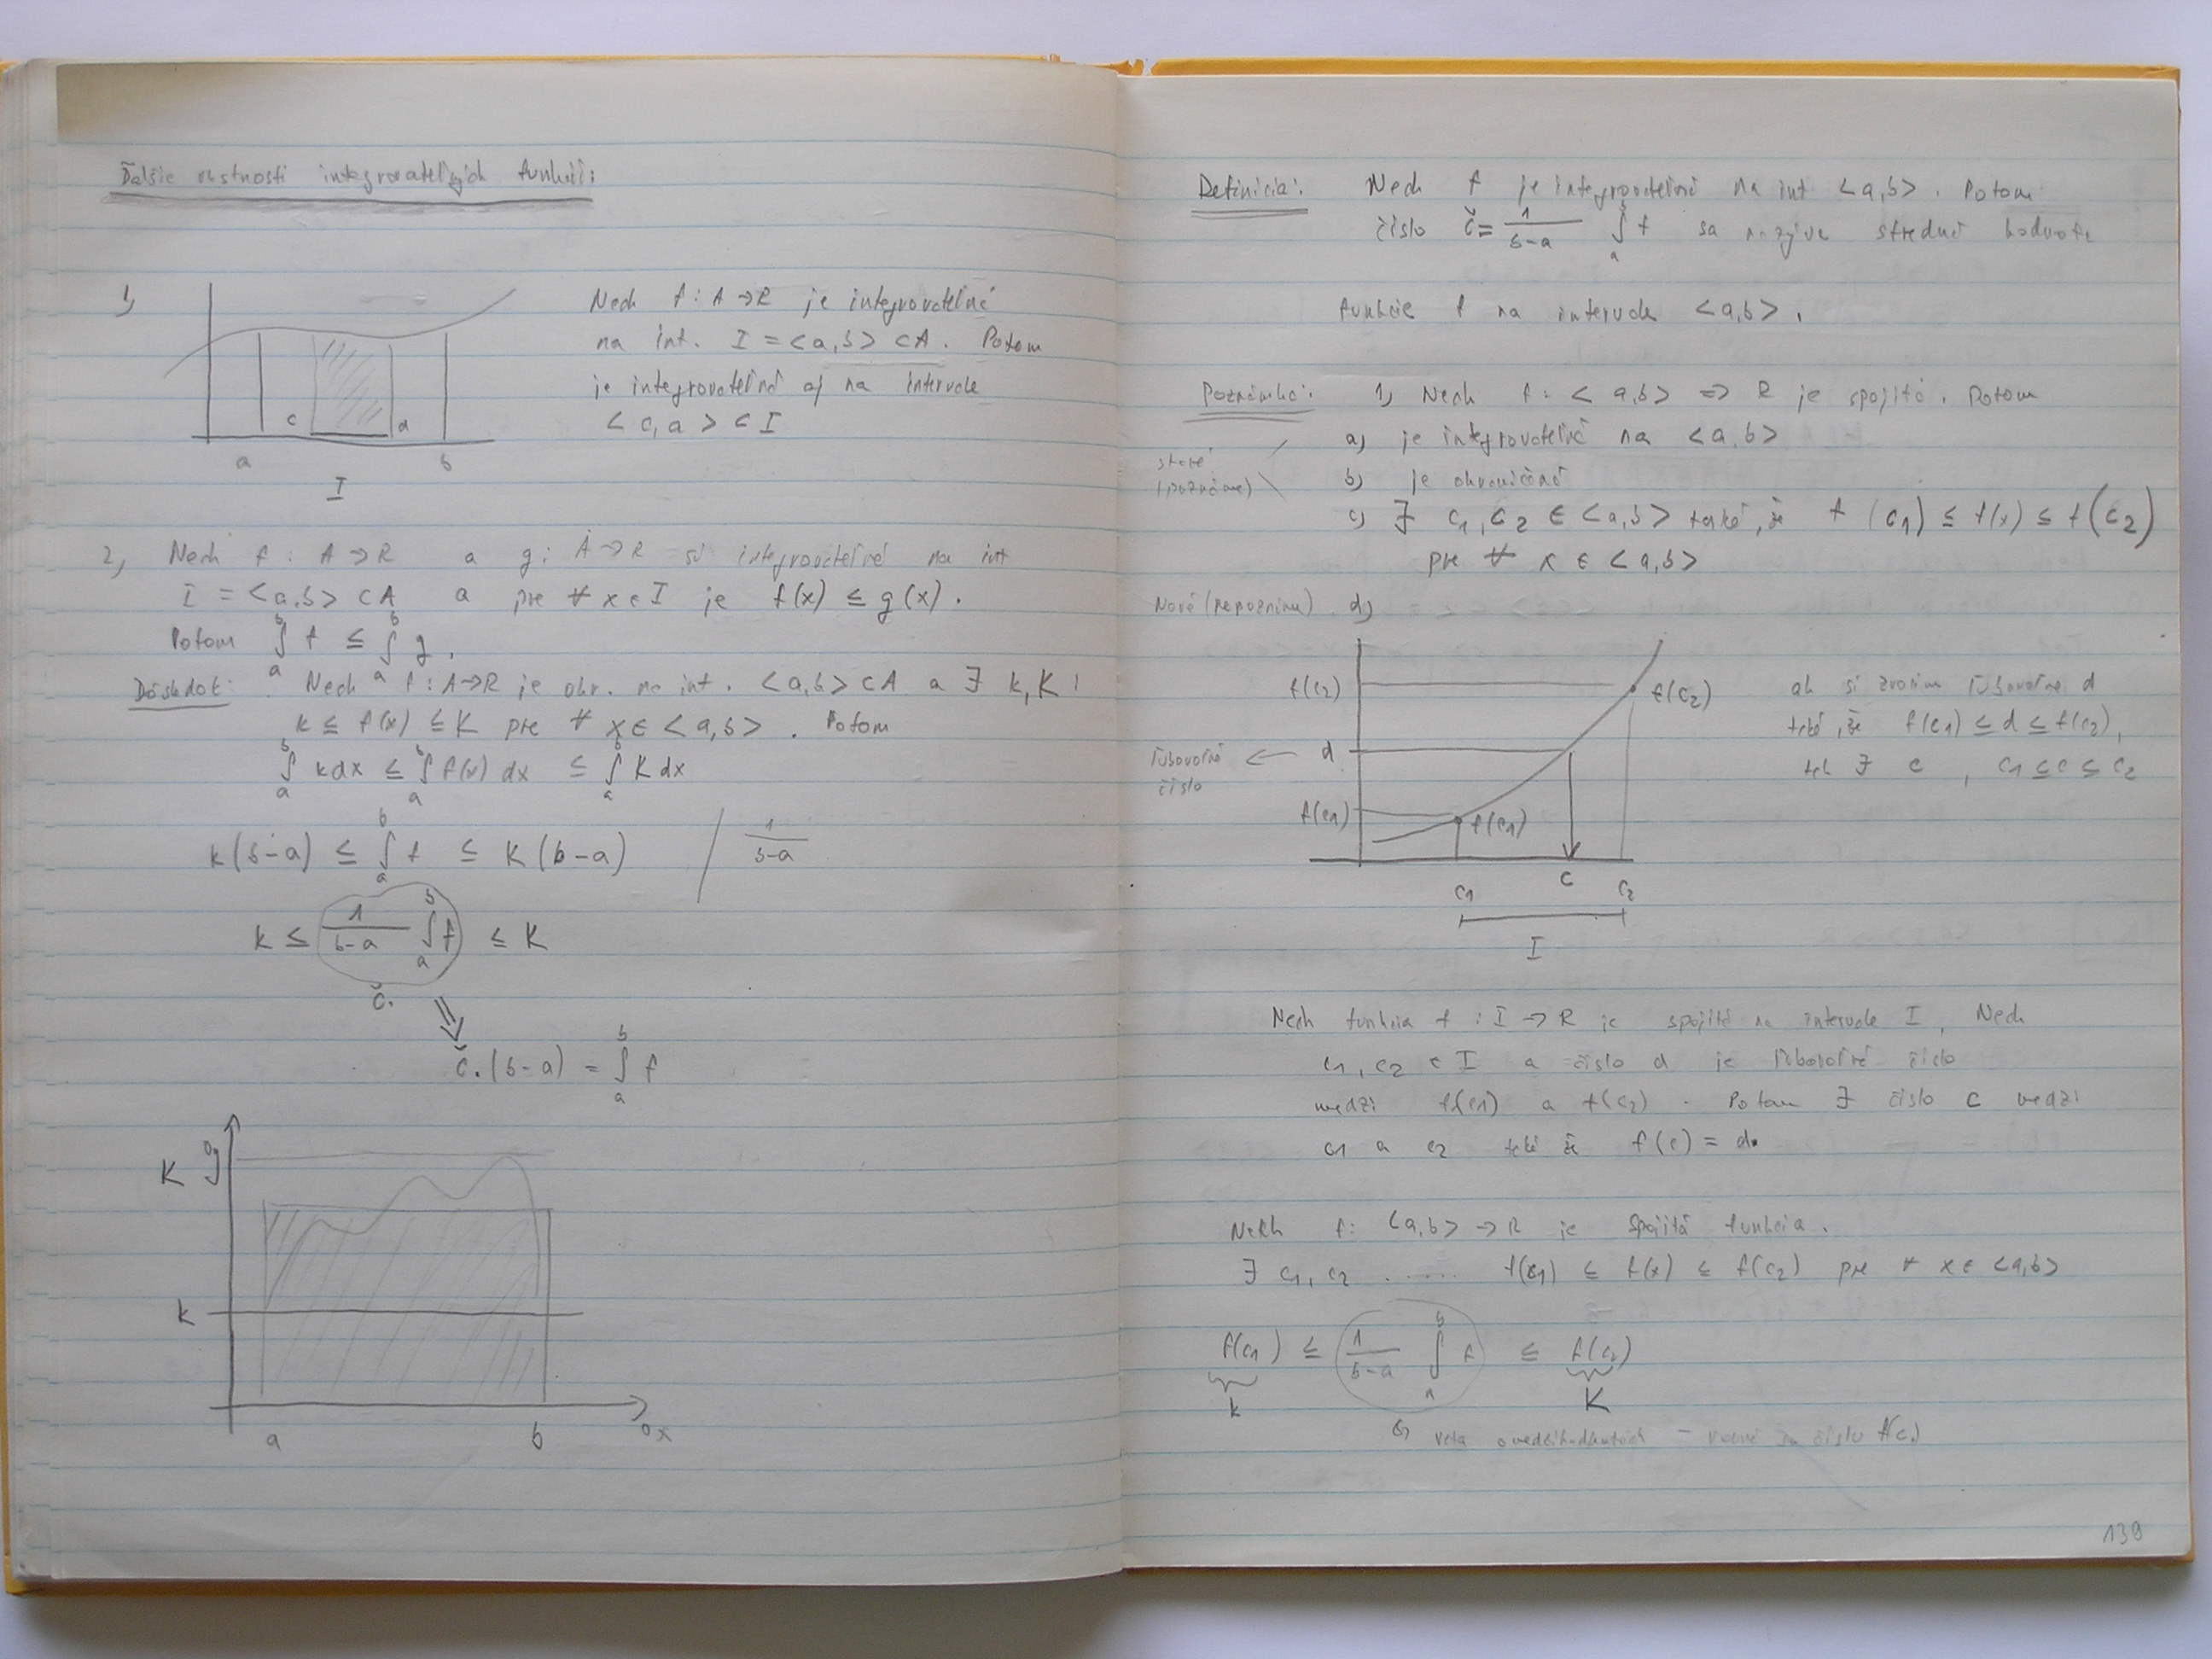 Ďalšie vlastnosti integrovateľných funkcií:
1)
c d
a b
I
Nech f: A → R je integrovateľná
na int. I = <a,b> ⊂ A. Potom
je integrovateľná aj na intervale
<c,d> ⊂ I
2) Nech f: A → R a g: A → R sú integrovateľné na int
I = <a,b> ⊂ A a pre ∀ x ∈ I je f(x) ≤ g(x).
Potom ∫_a^b f ≤ ∫_a^b g.
Dôsledok: Nech f: A → R je ohr. na int. <a,b> ⊂ A a ∃ k, K:
k ≤ f(x) ≤ K pre ∀ x ∈ <a,b>. Potom
∫_a^b k dx ≤ ∫_a^b f(x) dx ≤ ∫_a^b K dx
k(b-a) ≤ ∫_a^b f ≤ K(b-a) / 1/(b-a)
k ≤ 1/(b-a) ∫_a^b f ≤ K
č.
⇒
č.(b-a) = ∫_a^b f
K
k
a b ox
Definícia: Nech f je integrovateľná na int <a,b>. Potom
číslo č = 1/(b-a) ∫_a^b f sa nazýva stredná hodnota
funkcie f na intervale <a,b>.
Poznámka: 1) Nech f: <a,b> => R je spojitá. Potom
a) je integrovateľná na <a,b>
staré (poznáme)
b) je ohraničená
c) ∃ c1, c2 ∈ <a,b> také, že f(c1) ≤ f(x) ≤ f(c2)
pre ∀ x ∈ <a,b>
Nové (nepoznáme) d)
f(c2) f(c2)
ľubovoľné číslo ← d
f(c1) f(c1)
c1 c c2
I
ak si zvolím ľubovoľne d
také, že f(c1) ≤ d ≤ f(c2),
tak ∃ c, c1 ≤ c ≤ c2
Nech funkcia f: I → R je spojitá na intervale I, Nech
c1, c2 ∈ I a číslo d je ľubovoľné číslo
medzi f(c1) a f(c2). Potom ∃ číslo c medzi
c1 a c2 také že f(c) = d.
Nech f: <a,b> → R je spojitá funkcia.
∃ c1, c2 ...... f(c1) ≤ f(x) ≤ f(c2) pre ∀ x ∈ <a,b>
f(c1) ≤ 1/(b-a) ∫_a^b f ≤ f(c2)
k K
veta o medzihodnotách - číslo f(c)
139